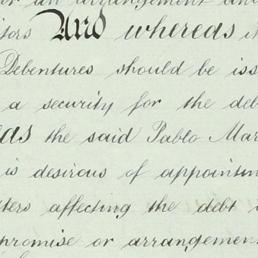 or an arrangement and
tors And whereas it
Debentures should be iss
a security for the deb
eas the said Pablo Mar
is desirous of appointm
tters affecting the debt
promise or arrangemen